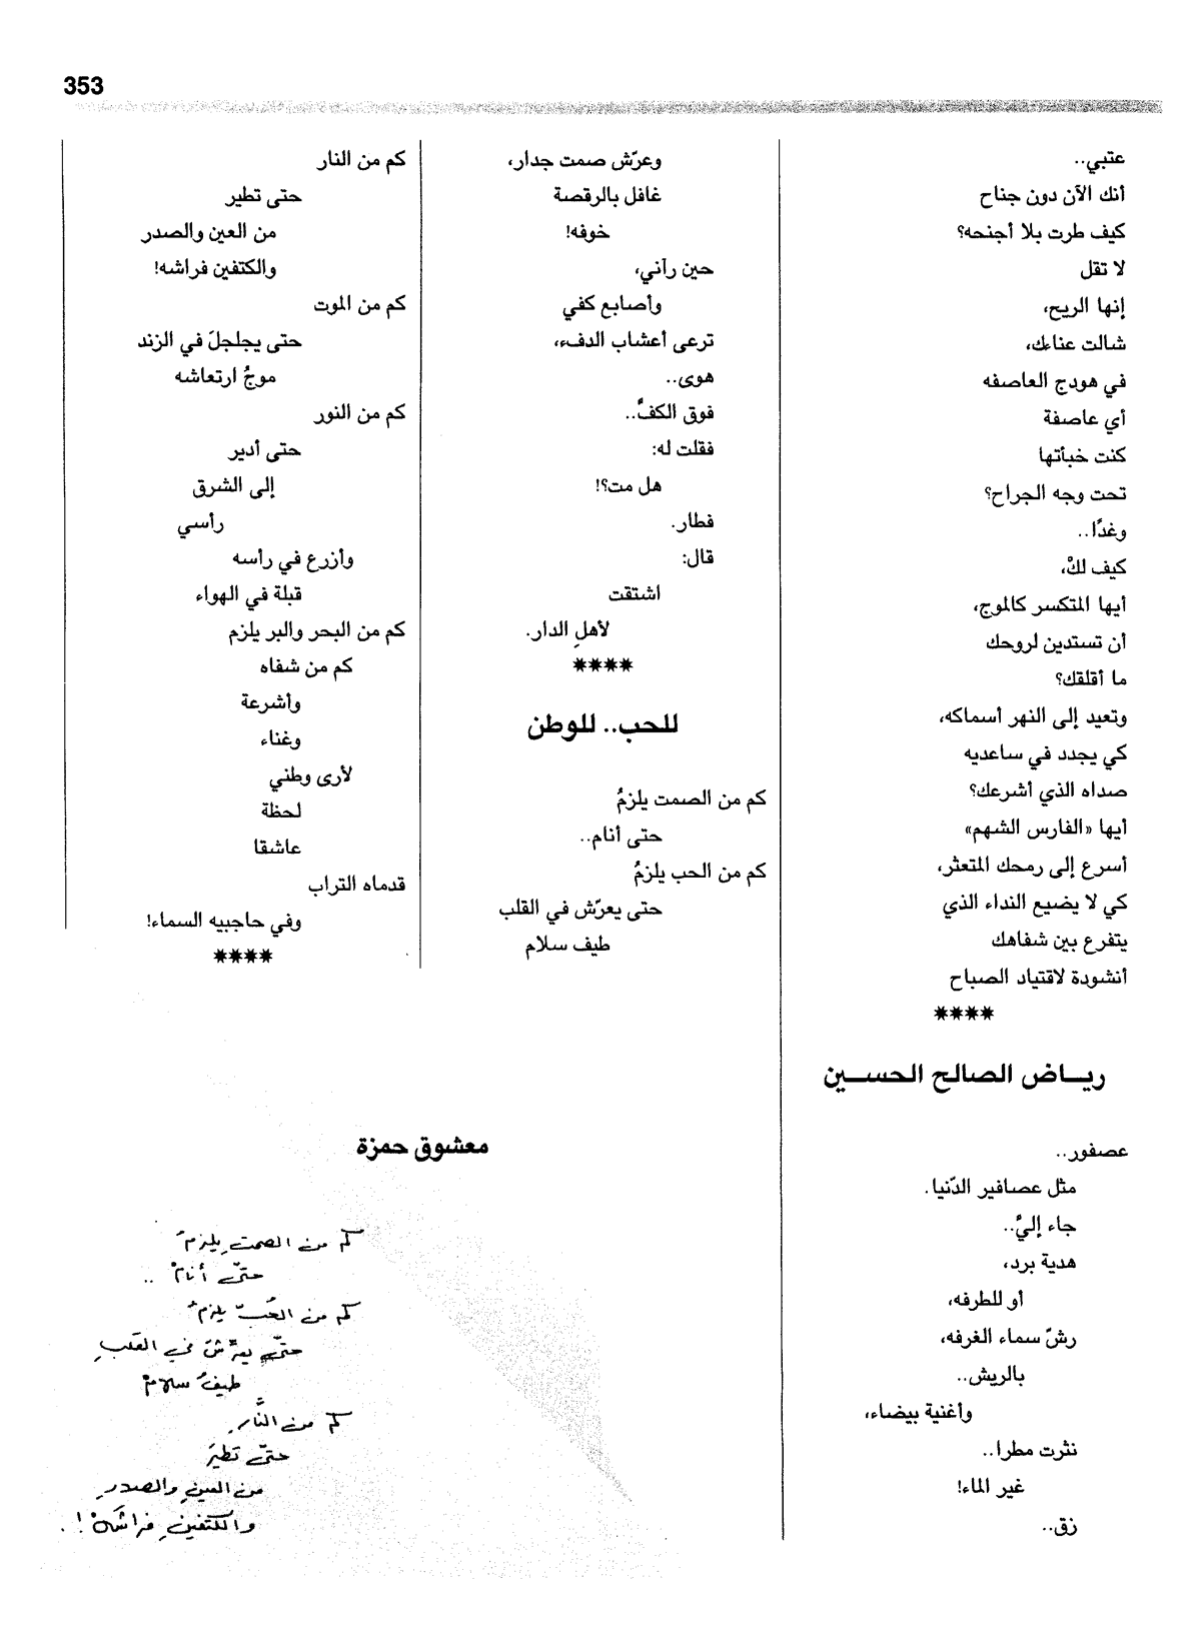 353
عتبي..
أنك الآن دون جناح
كيف طرت بلا أجنحه؟
لا تقل
إنها الريح،
شالت عناءك،
في هودج العاصفه
أي عاصفة
كنت خبأتها
تحت وجه الجراح؟
وغدًا..
كيف لكْ،
أيها المتكسر كالموج،
أن تستدين لروحك
ما أقلقك؟
وتعيد إلى النهر أسماكه،
كي يجدد في ساعديه
صداه الذي أشرعك؟
أيها «الفارس الشهم»
أسرع إلى رمحك المتعثر،
كي لا يضيع النداء الذي
يتفرع بين شفاهك
أنشودة لاقتياد الصباح
****
ريــاض الصالح الحســين
عصفور..
مثل عصافير الدّنيا.
جاء إليَّ..
هدية برد،
أو للطرفه،
رشّ سماء الغرفه،
بالريش..
وأغنية بيضاء،
نثرت مطرا..
غير الماء!
زق..
وعرّش صمت جدار،
غافل بالرقصة
خوفه!
حين رآني،
وأصابع كفي
ترعى أعشاب الدفء،
هوى..
فوق الكفِّ..
فقلت له:
هل مت؟!
فطار.
قال:
اشتقت
لأهلِ الدار.
****
للحب.. للوطن
كم من الصمت يلزمُ
حتى أنام..
كم من الحب يلزمُ
حتى يعرّش في القلب
طيف سلام
كم من النار
حتى تطير
من العين والصدر
والكتفين فراشه!
كم من الموت
حتى يجلجلَ في الزند
موجُ ارتعاشه
كم من النور
حتى أدير
إلى الشرق
رأسي
وأزرع في رأسه
قبلة في الهواء
كم من البحر والبر يلزم
كم من شفاه
وأشرعة
وغناء
لأرى وطني
لحظة
عاشقا
قدماه التراب
وفي حاجبيه السماء!
****
معشوق حمزة
كم من الصمتِ يلزمُ
حتّى أنامْ ..
كم من الحُبّ يلزمُ
حتّى يعرّشَ في القلبِ
طيفُ سلامْ
كم من النَّارِ
حتّى تطيرَ
من العينِ والصدرِ
والكتفينِ فراشَهْ !.